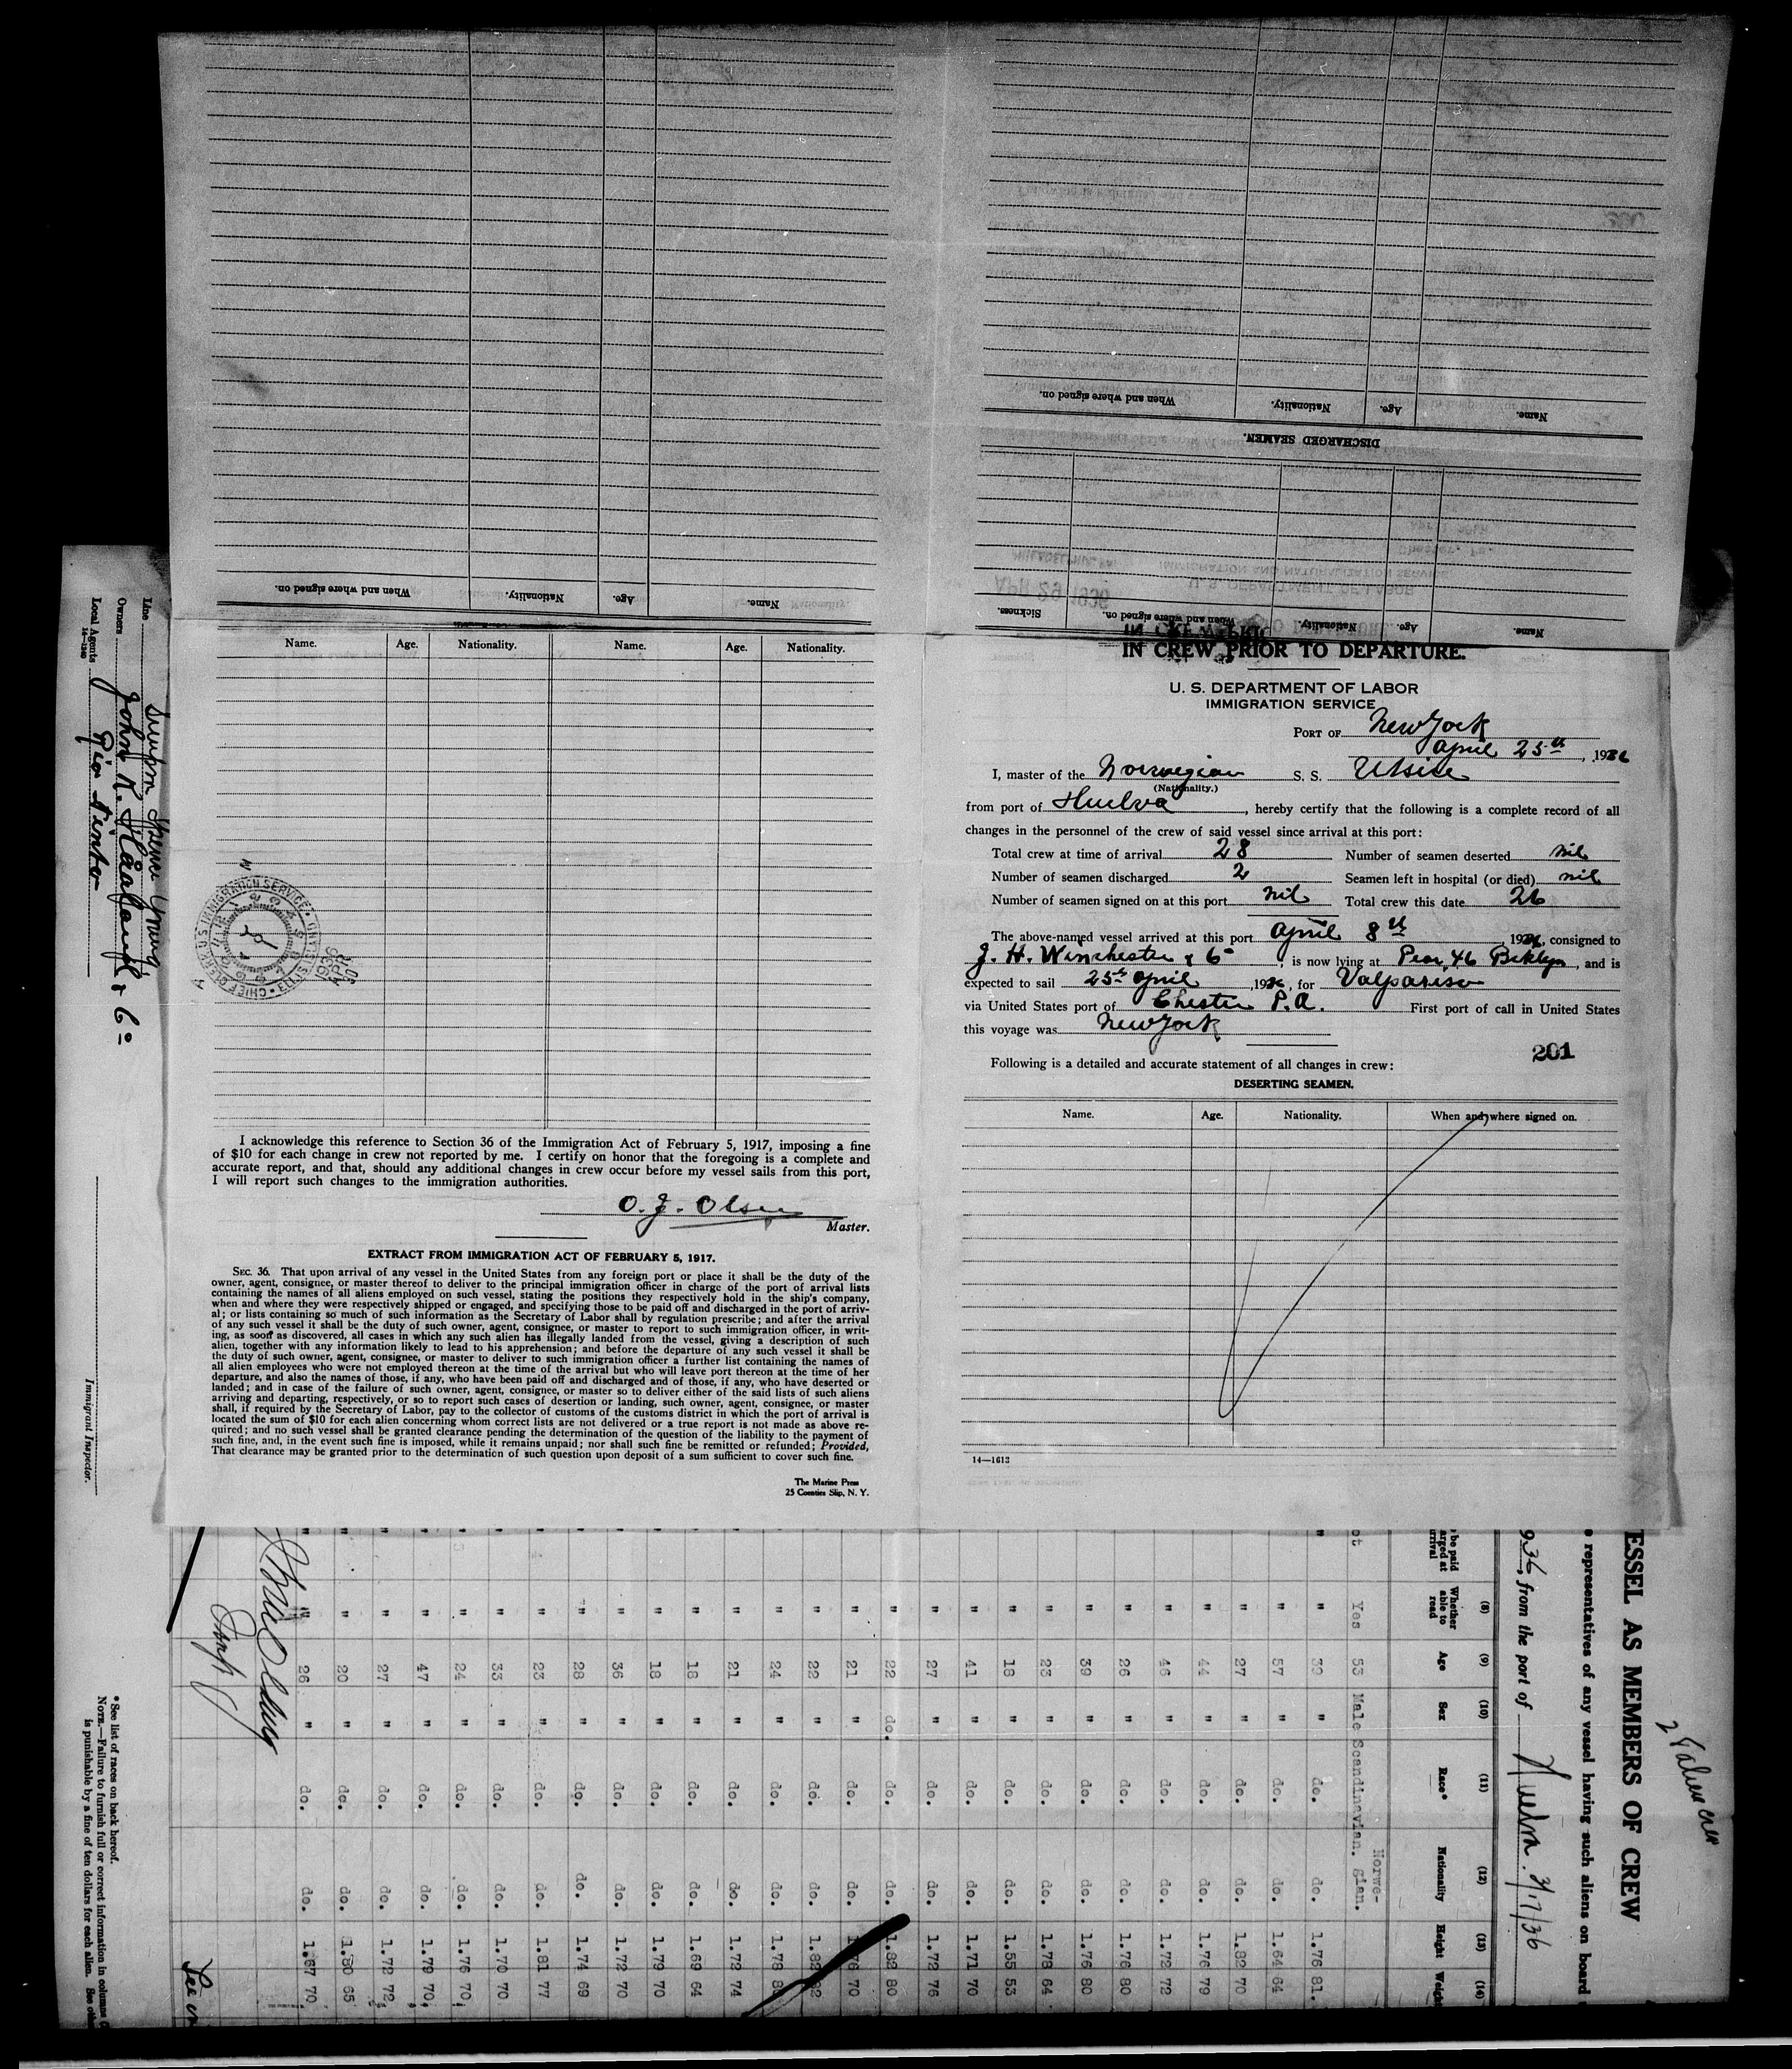 When and where signed on.
Nationality.
Age.
Name.
Name.
Age.
Nationality.
When and where signed on.
DISCHARGED SEAMEN.
Name.
Age.
Nationality.
When and where signed on.
Sickness.
APR 29 1936
U. S. DEPARTMENT OF LABOR
IMMIGRATION AND NATURALIZATION SERVICE
Name. Age. Nationality. Name. Age. Nationality.
I acknowledge this reference to Section 36 of the Immigration Act of February 5, 1917, imposing a fine
of $10 for each change in crew not reported by me. I certify on honor that the foregoing is a complete and
accurate report, and that, should any additional changes in crew occur before my vessel sails from this port,
I will report such changes to the immigration authorities.
O. J. Olsen
Master.
EXTRACT FROM IMMIGRATION ACT OF FEBRUARY 5, 1917.
SEC. 36. That upon arrival of any vessel in the United States from any foreign port or place it shall be the duty of the
owner, agent, consignee, or master thereof to deliver to the principal immigration officer in charge of the port of arrival lists
containing the names of all aliens employed on such vessel, stating the positions they respectively hold in the ship's company,
when and where they were respectively shipped or engaged, and specifying those to be paid off and discharged in the port of arriv-
al; or lists containing so much of such information as the Secretary of Labor shall by regulation prescribe; and after the arrival
of any such vessel it shall be the duty of such owner, agent, consignee, or master to report to such immigration officer, in writ-
ing, as soon as discovered, all cases in which any such alien has illegally landed from the vessel, giving a description of such
alien, together with any information likely to lead to his apprehension; and before the departure of any such vessel it shall be
the duty of such owner, agent, consignee, or master to deliver to such immigration officer a further list containing the names of
all alien employees who were not employed thereon at the time of the arrival but who will leave port thereon at the time of her
departure, and also the names of those, if any, who have been paid off and discharged and of those, if any, who have deserted or
landed; and in case of the failure of such owner, agent, consignee, or master so to deliver either of the said lists of such aliens
arriving and departing, respectively, or so to report such cases of desertion or landing, such owner, agent, consignee, or master
shall, if required by the Secretary of Labor, pay to the collector of customs of the customs district in which the port of arrival is
located the sum of $10 for each alien concerning whom correct lists are not delivered or a true report is not made as above re-
quired; and no such vessel shall be granted clearance pending the determination of the question of the liability to the payment of
such fine, and, in the event such fine is imposed, while it remains unpaid; nor shall such fine be remitted or refunded; Provided,
That clearance may be granted prior to the determination of such question upon deposit of a sum sufficient to cover such fine.
The Marine Press
25 Coenties Slip, N. Y.
IN CREW PRIOR TO DEPARTURE.
U. S. DEPARTMENT OF LABOR
IMMIGRATION SERVICE
PORT OF New York
april 25th, 1936
I, master of the Norwegian S. S. Utsire
(Nationality.)
from port of Huelva, hereby certify that the following is a complete record of all
changes in the personnel of the crew of said vessel since arrival at this port:
Total crew at time of arrival 28 Number of seamen deserted nil
Number of seamen discharged 2 Seamen left in hospital (or died) nil
Number of seamen signed on at this port nil Total crew this date 26
The above-named vessel arrived at this port april 8th, 1936, consigned to
J. H. Winchester & Co, is now lying at Pier 46 Brklyn, and is
expected to sail 25th april, 1936, for Valpariso
via United States port of Chester P.A. First port of call in United States
this voyage was New York
201
Following is a detailed and accurate statement of all changes in crew:
DESERTING SEAMEN.
Name. Age. Nationality. When and where signed on.
14—1613
Line
Owners John K. Haaland & Co
Local Agents Rio Tinto
14-1240
Immigrant Inspector.
CHIEF CLERK U.S. IMMIGRATION SERVICE ELLIS ISLAND
1936 APR 30
ESSEL AS MEMBERS OF CREW
representatives of any vessel having such aliens on board
936, from the port of Huelva. 3/17/36
(8) (9) (10) (11) (12) (13) (14)
be paid
arged at
rrival
Whether able to read Age Sex Race* Nationality Height Weight
ot Yes 53 Male Scandinavian. Norwe-gian.
" " 39 " do. do. 1.76 81.
" 57 " do. do. 1.64 64
" 27 " do. do. 1.82 70
" 44 " do. do. 1.76 79
" 46 " do. do. 1.72 72
" 26 " do. do. 1.76 80
" 39 " do. do. 1.76 80
" 23 " do. do. 1.73 64
" 18 " do. do. 1.55 53
" 41 " do. do. 1.71 70
" 27 " do. do. 1.72 76
" 22 do. do. do. 1.82 80
" 21 " do. do. 70
" 22 " do. do.
" 24 " do. do. 1.78
" 21 " do. do. 1.72 74
" 18 " do. do. 1.69 64
" 18 " do. do. 1.79 70
" 36 " do. do. 1.72 70
" 28 " do. do. 1.74 69
" 23 " do. do. 1.81 77
" 33 " do. do. 1.70 70
" 24 " do. do. 1.76 70
" 47 " do. do. 1.79 70
" 27 " do. do. 1.72 72
" 20 " do. do. 1.80 65
" 26 " do. do. 1.67 70
* See list of races on back hereof.
NOTE.—Failure to furnish full or correct information in columns
is punishable by a fine of ten dollars for each alien. See